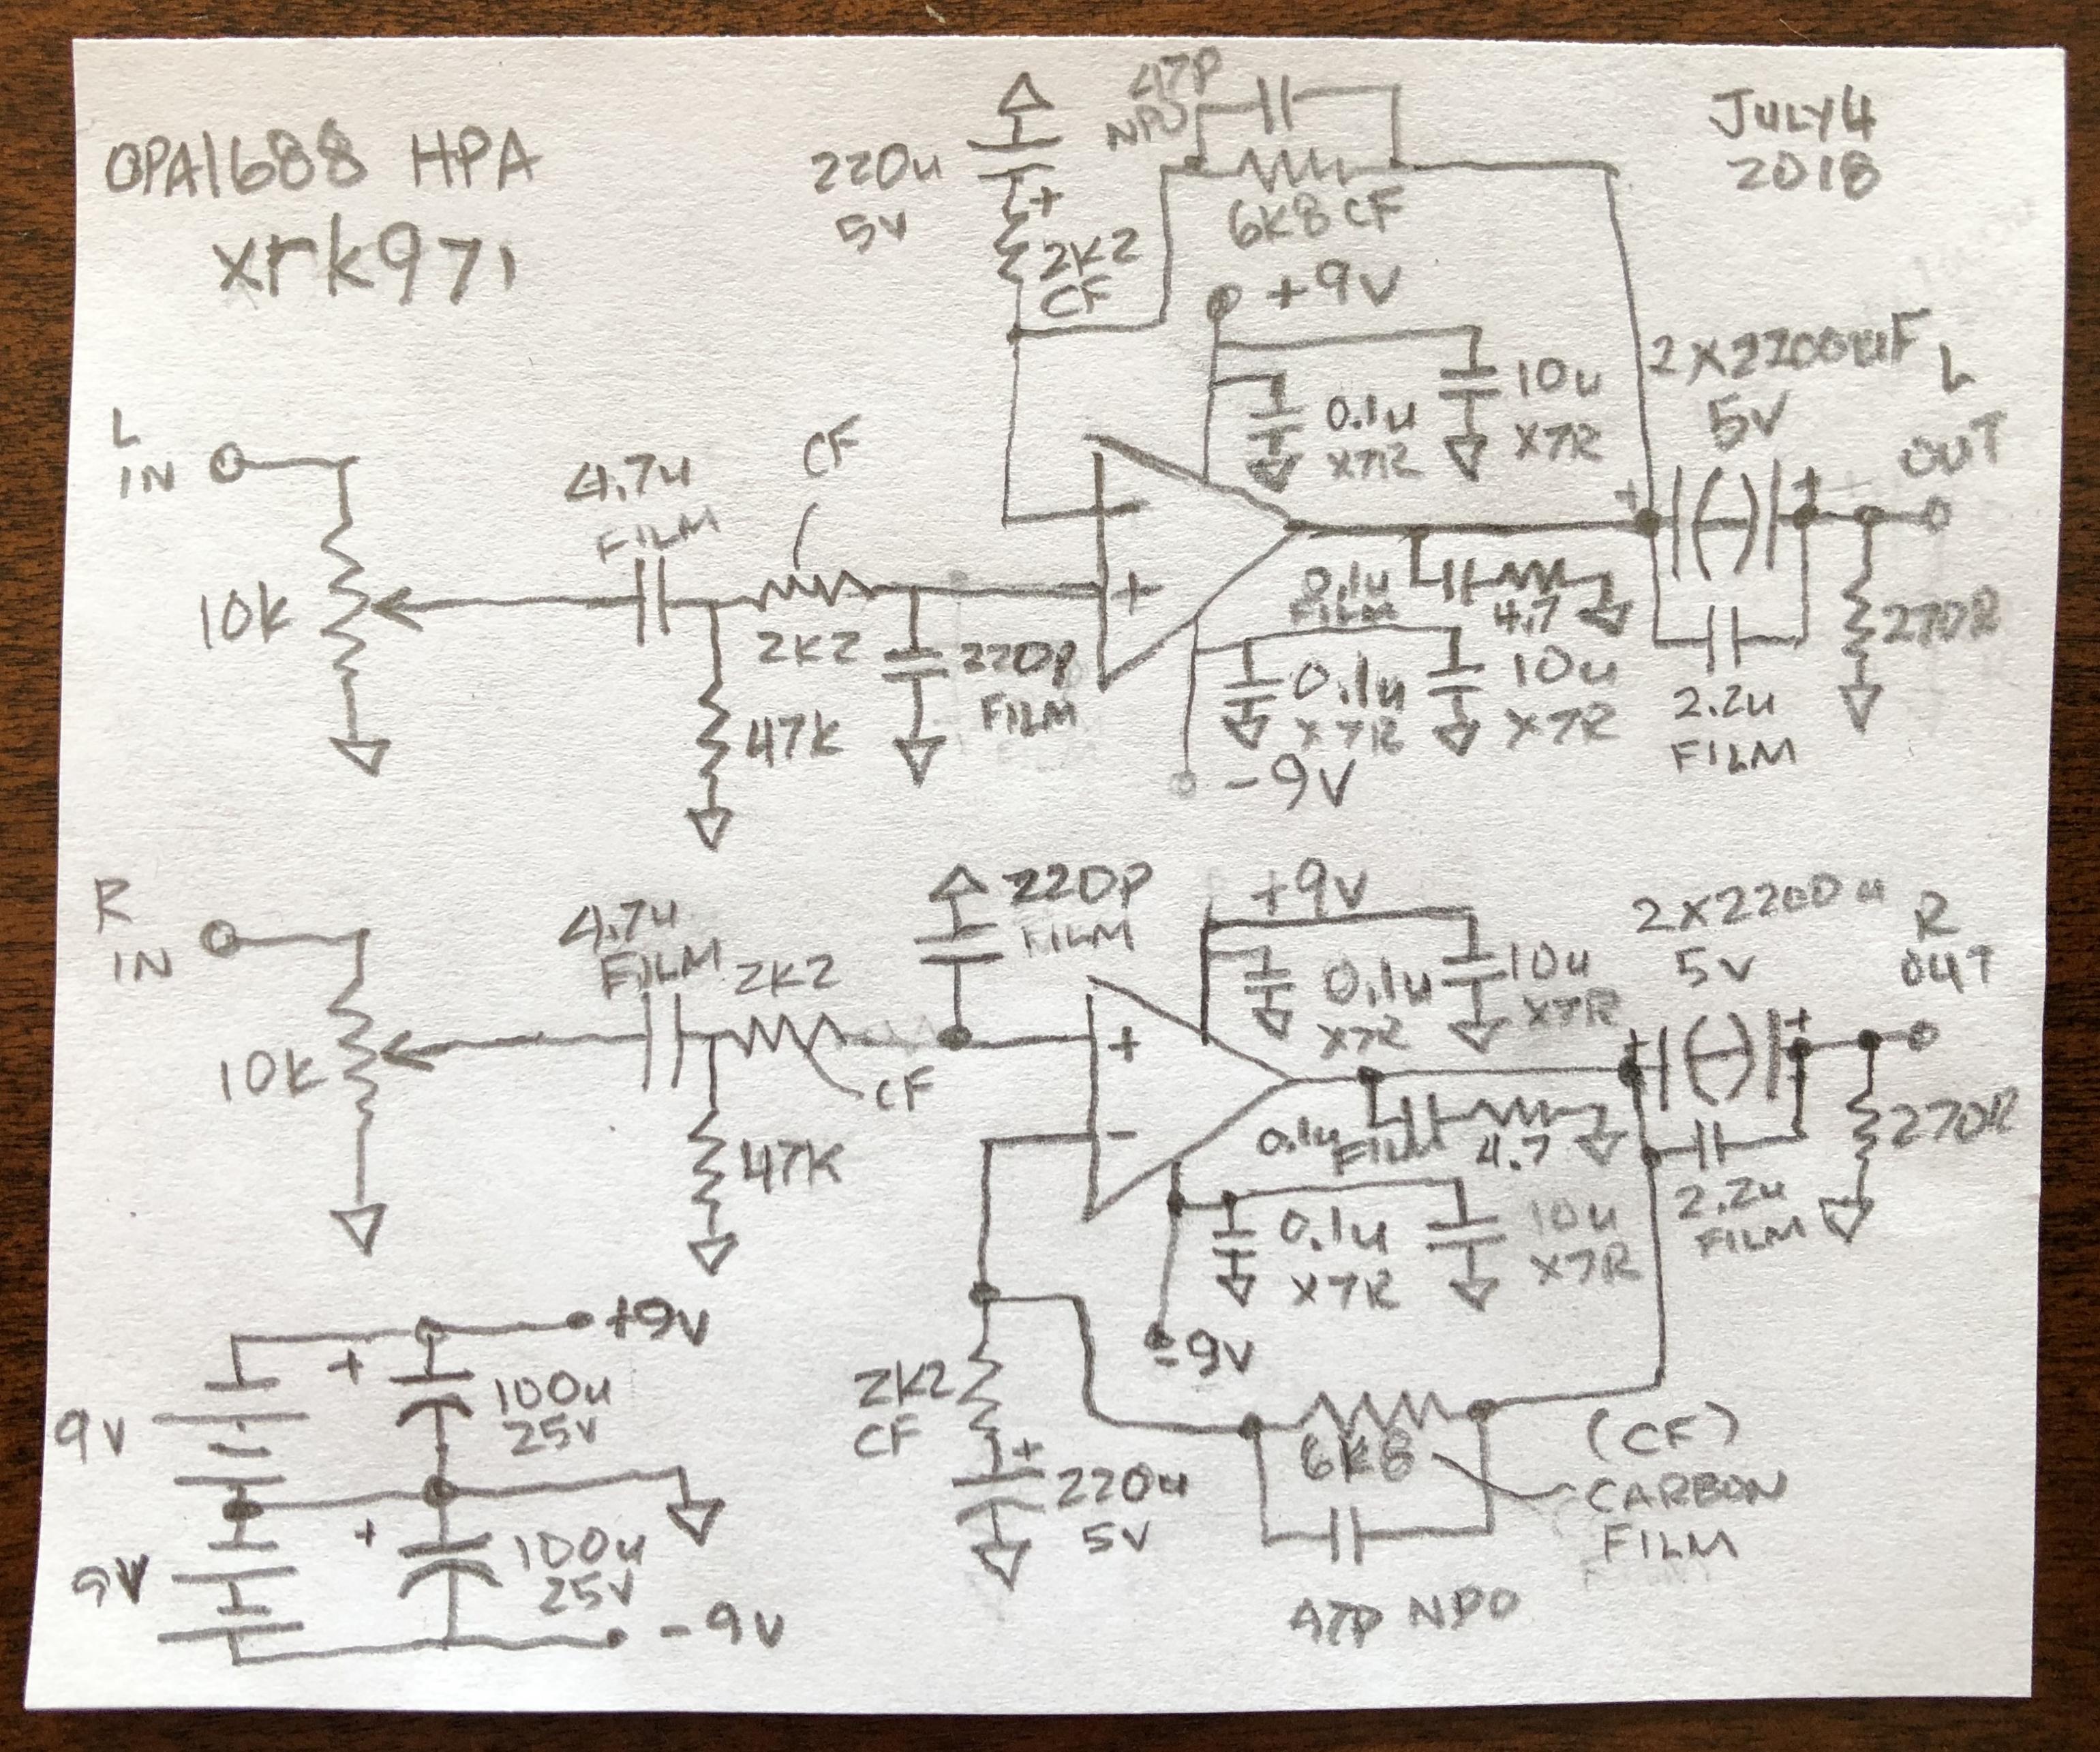 OPA1688 HPA
xrk971
JULY 4
2018
47P
NPO
220u
5V
+
2K2
CF
6K8 CF
+9V
0.1u
X7R
10u
X7R
2X2200uF
5V
L
OUT
L
IN
10K
4.7u
FILM
CF
2K2
47K
220P
FILM
-
+
0.1u
FILM
4.7
+
+
270R
2.2u
FILM
0.1u
X7R
10u
X7R
-9V
R
IN
10K
4.7u
FILM
2K2
CF
47K
220P
FILM
+
-
+9V
0.1u
X7R
10u
X7R
2X2200u
5V
R
OUT
0.1u
FILM
4.7
+
+
270R
2.2u
FILM
0.1u
X7R
10u
X7R
-9V
2K2
CF
+
220u
5V
6K8
47P NPO
(CF)
CARBON
FILM
+9V
9V
+
100u
25V
9V
+
100u
25V
-9V